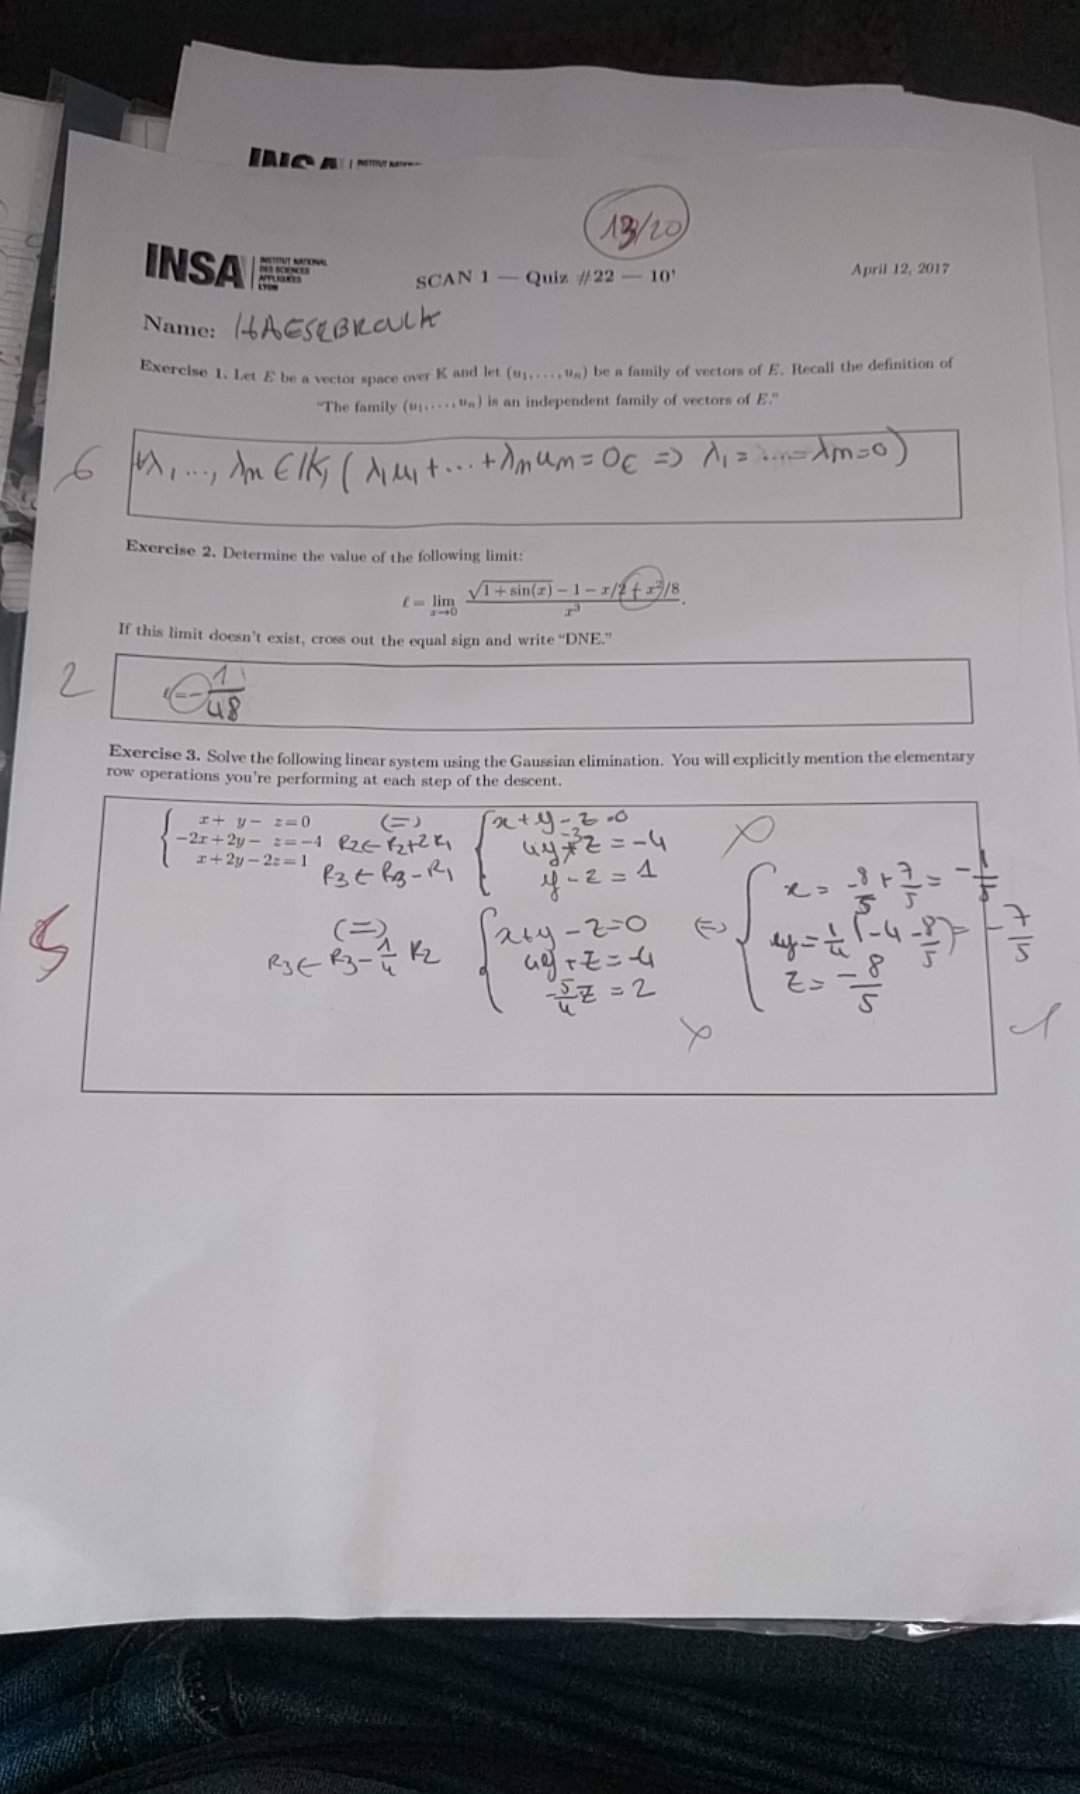 INSA | INSTITUT
13/20
INSA | INSTITUT NATIONAL
DES SCIENCES
APPLIQUÉES
LYON
SCAN 1 — Quiz #22 — 10'
April 12, 2017
Name: HAESEBROUCK
Exercise 1. Let E be a vector space over K and let (u₁, …, uₙ) be a family of vectors of E. Recall the definition of
"The family (u₁, …, uₙ) is an independent family of vectors of E."
6
∀λ₁ …, λₙ ∈ K, ( λ₁u₁ + … + λₙuₙ = 0_E => λ₁ = … = λₙ = 0 )
Exercise 2. Determine the value of the following limit:
ℓ = lim x→0 (√(1 + sin(x)) − 1 − x/2 + x²/8) / x³.
If this limit doesn't exist, cross out the equal sign and write "DNE."
2
= − 1/48
Exercise 3. Solve the following linear system using the Gaussian elimination. You will explicitly mention the elementary
row operations you're performing at each step of the descent.
x + y − z = 0 (=) x + y − z = 0
−2x + 2y − z = −4 R2 ← R2 + 2R1 4y −3 z = −4
x + 2y − 2z = 1 R3 ← R3 − R1 y − z = 1
5
(=) x + y − z = 0 (=) x = −8/5 + 7/5 = −1/5
R3 ← R3 − 1/4 R2 4y + z = −4 y = 1/4 (−4 − 8/5) = −7/5
−5/4 z = 2 z = −8/5
1